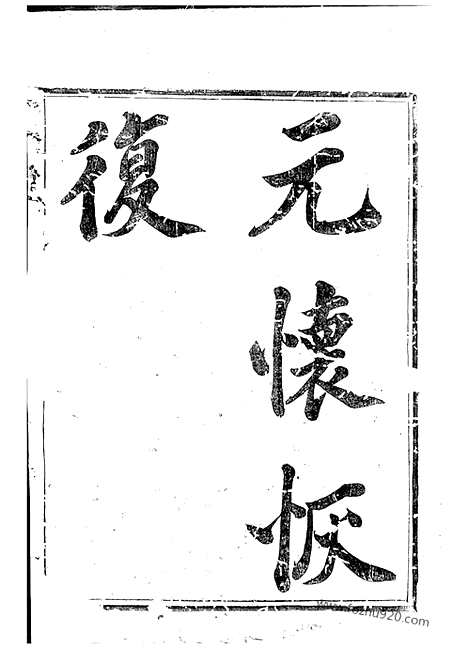 元懷恢
復
www.fozhu920.com